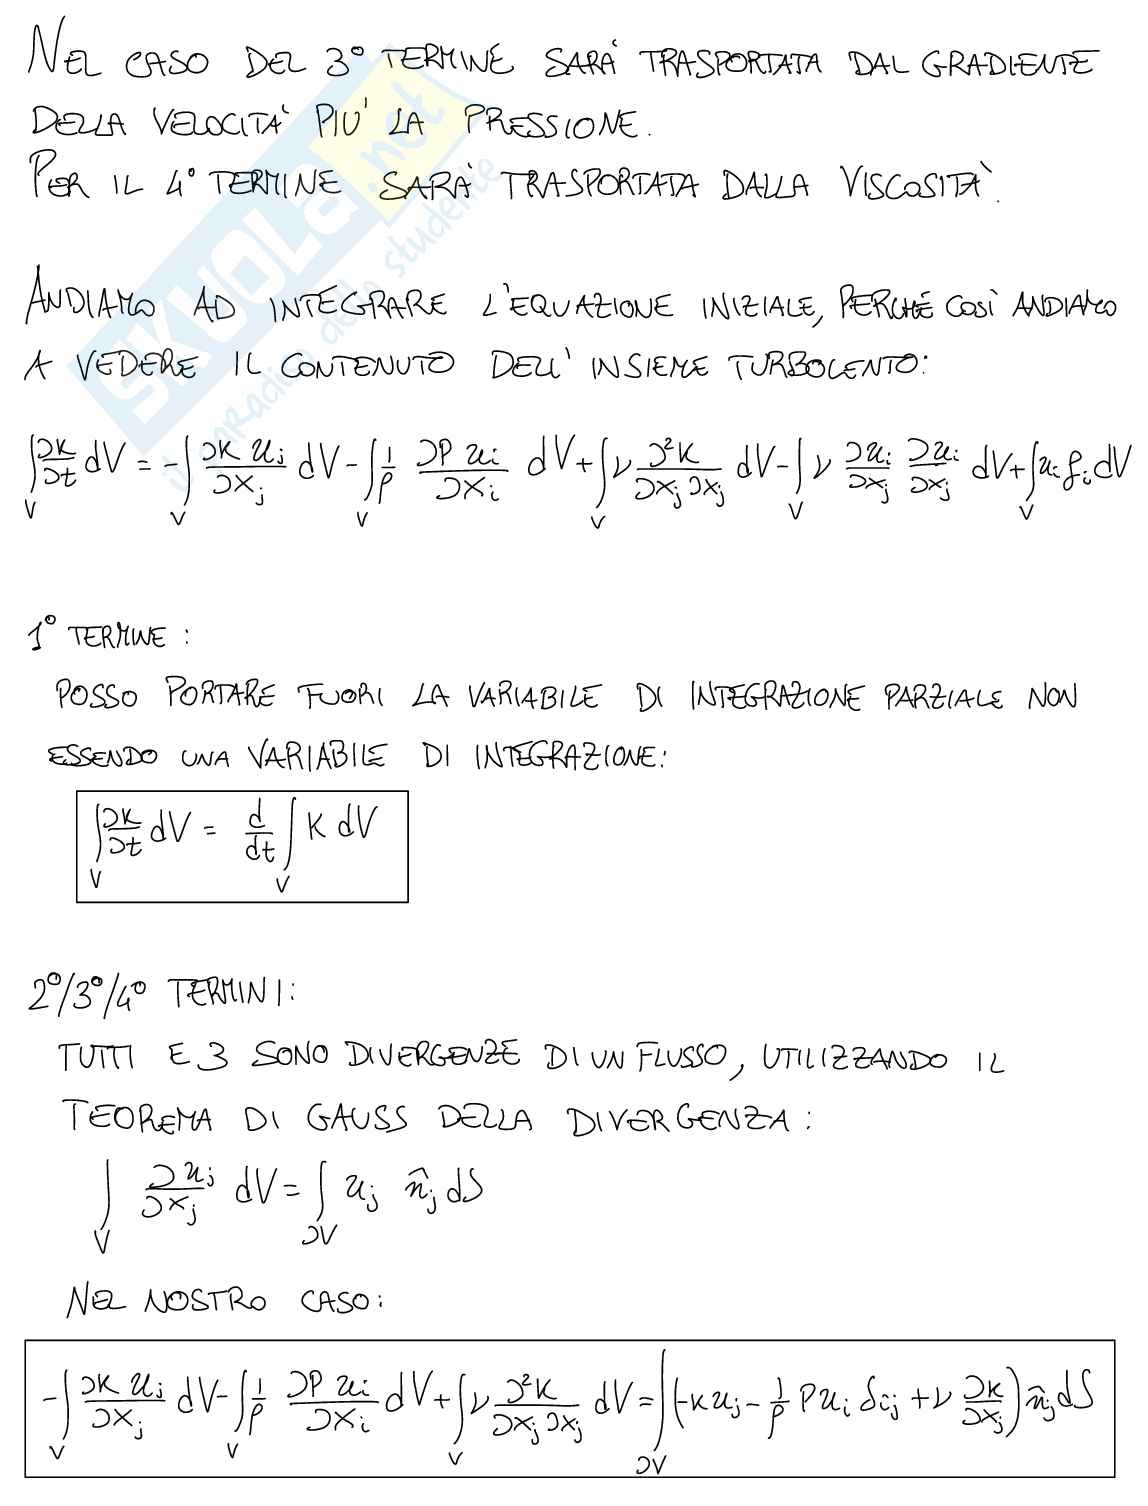 NEL CASO DEL 3° TERMINE SARÀ TRASPORTATA DAL GRADIENTE
DELLA VELOCITA' PIU' LA PRESSIONE.
PER IL 4° TERMINE SARÀ TRASPORTATA DALLA VISCOSITÀ.
ANDIAMO AD INTEGRARE L'EQUAZIONE INIZIALE, PERCHÉ COSÌ ANDIAMO
A VEDERE IL CONTENUTO DELL'INSIEME TURBOLENTO:
∫_V ∂K/∂t dV = -∫_V ∂K u_j/∂x_j dV - ∫_V 1/ρ ∂P u_i/∂x_i dV + ∫_V ν ∂²K/∂x_j ∂x_j dV - ∫_V ν ∂u_i/∂x_j ∂u_i/∂x_j dV + ∫_V u_i f_i dV
1° TERMINE:
POSSO PORTARE FUORI LA VARIABILE DI INTEGRAZIONE PARZIALE NON
ESSENDO UNA VARIABILE DI INTEGRAZIONE:
∫_V ∂K/∂t dV = d/dt ∫_V K dV
2°/3°/4° TERMINI:
TUTTI E 3 SONO DIVERGENZE DI UN FLUSSO, UTILIZZANDO IL
TEOREMA DI GAUSS DELLA DIVERGENZA:
∫_V ∂u_j/∂x_j dV = ∫_∂V u_j n̂_j dS
NEL NOSTRO CASO:
-∫_V ∂K u_j/∂x_j dV - ∫_V 1/ρ ∂P u_i/∂x_i dV + ∫_V ν ∂²K/∂x_j ∂x_j dV = ∫_∂V (-K u_j - 1/ρ P u_i δ_ij + ν ∂K/∂x_j) n̂_j dS
SKUOLA.net
il paradiso dello studente